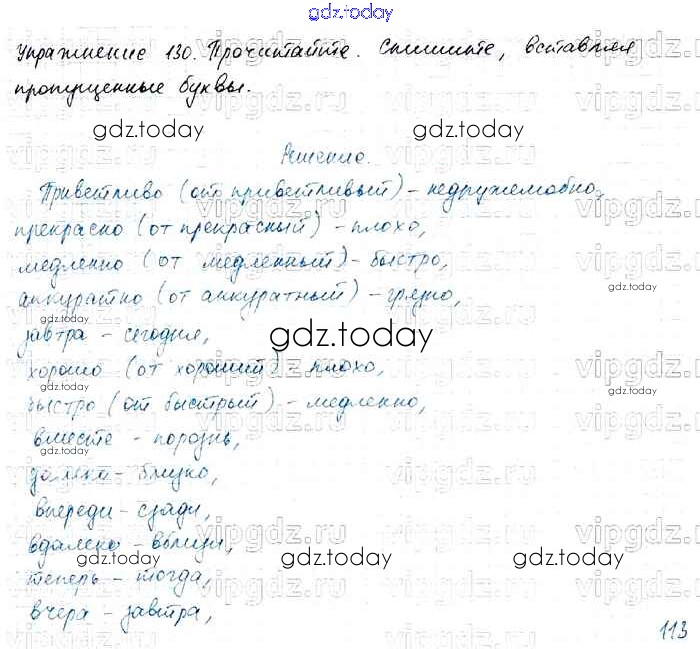 gdz.today
Упражнение 130. Прочитайте. Спишите, вставляя
пропущенные буквы.
gdz.today gdz.today
Решение.
Приветливо (от приветливый) - недружелюбно,
прекрасно (от прекрасный) - плохо,
медленно (от медленный) - быстро,
аккуратно (от аккуратный) - грязно,
завтра - сегодня,
gdz.today
хорошо (от хороший) - плохо,
быстро (от быстрый) - медленно,
вместе - порознь,
далеко - близко,
впереди - сзади,
вдалеке - вблизи,
gdz.today gdz.today gdz.today
теперь - тогда,
вчера - завтра,
113